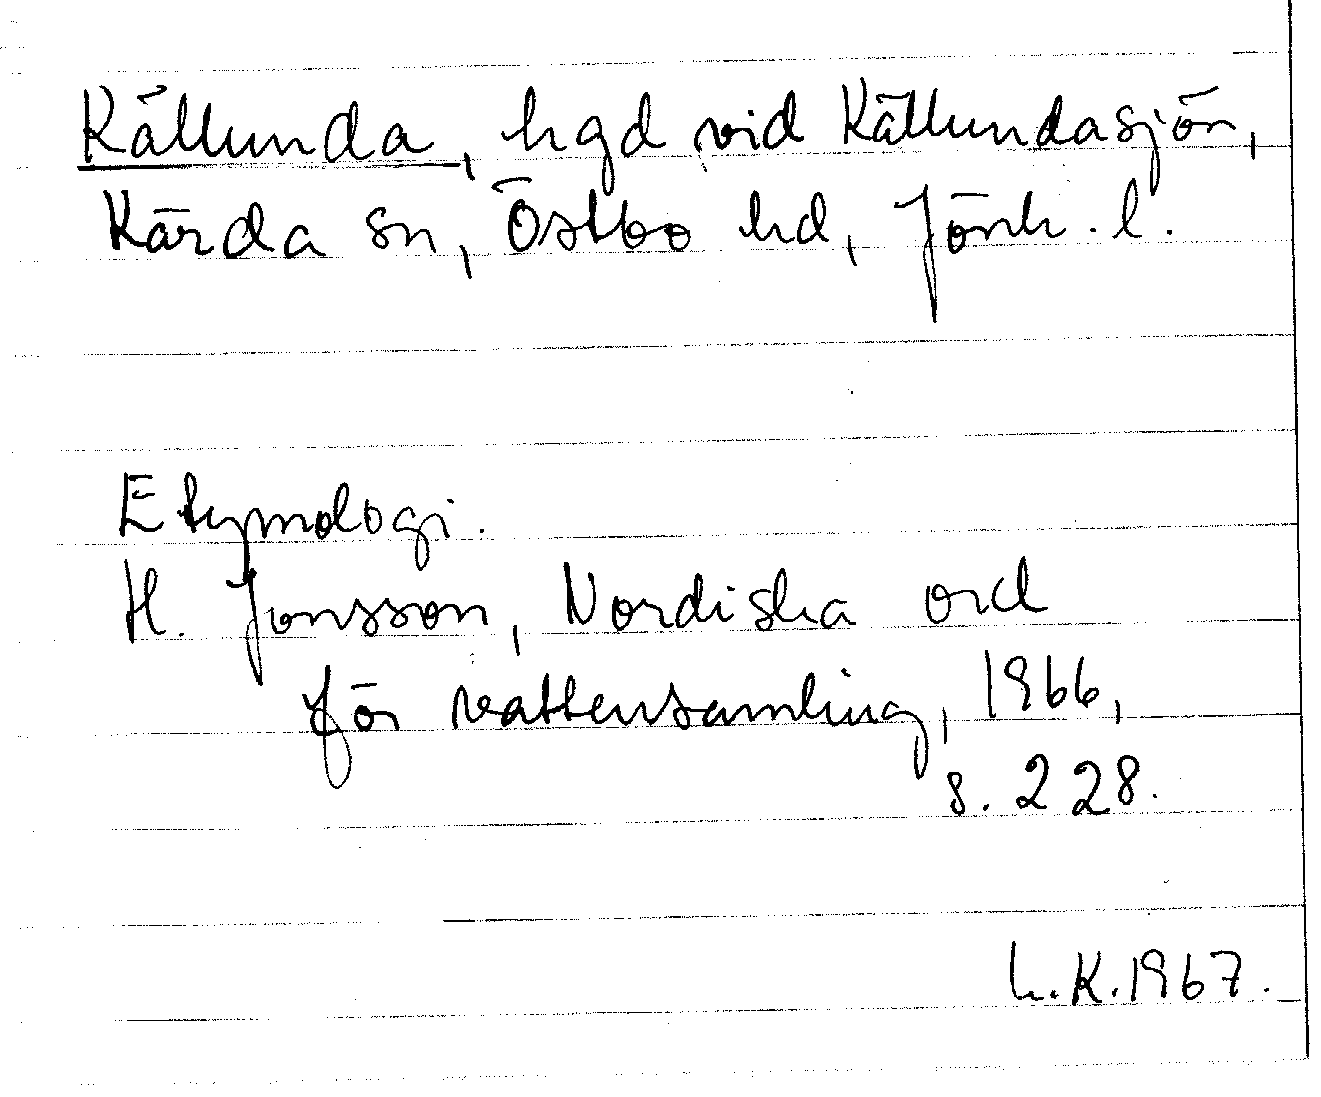 Källunda, hgd vid Källundasjön,
Kärda sn, Östbo hd, Jönk. l.
Etymologi.
H. Jonsson, Nordiska ord
för vattensamling, 1966,
s. 228.
L.K. 1967.